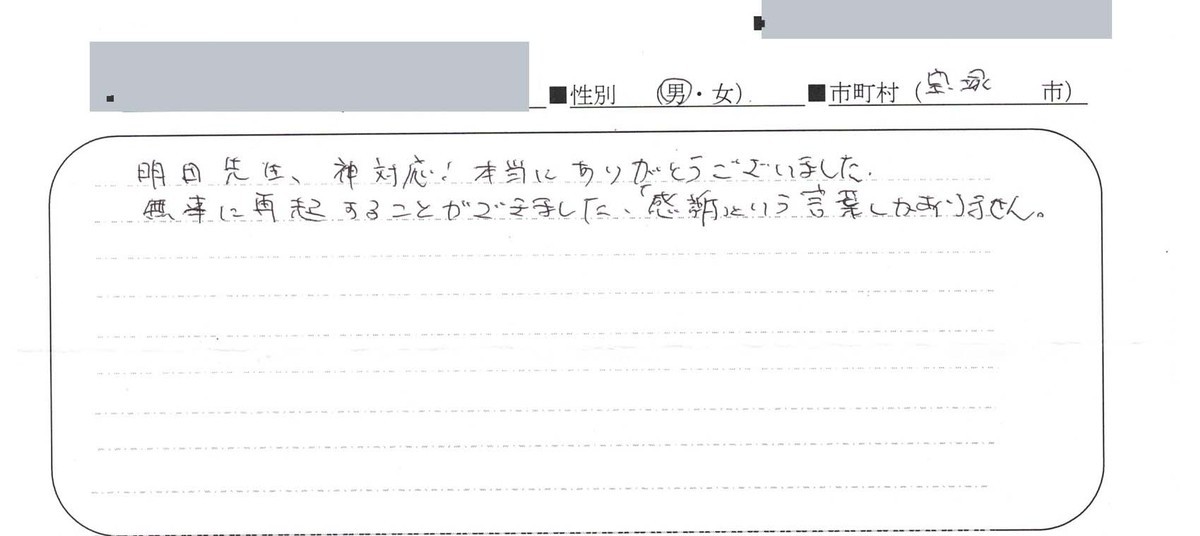 ■性別 (男・女) ■市町村 (宝塚 市)
明田先生、神対応！本当にありがとうございました.
無事に再起することができました、「感謝」という言葉しかありません。